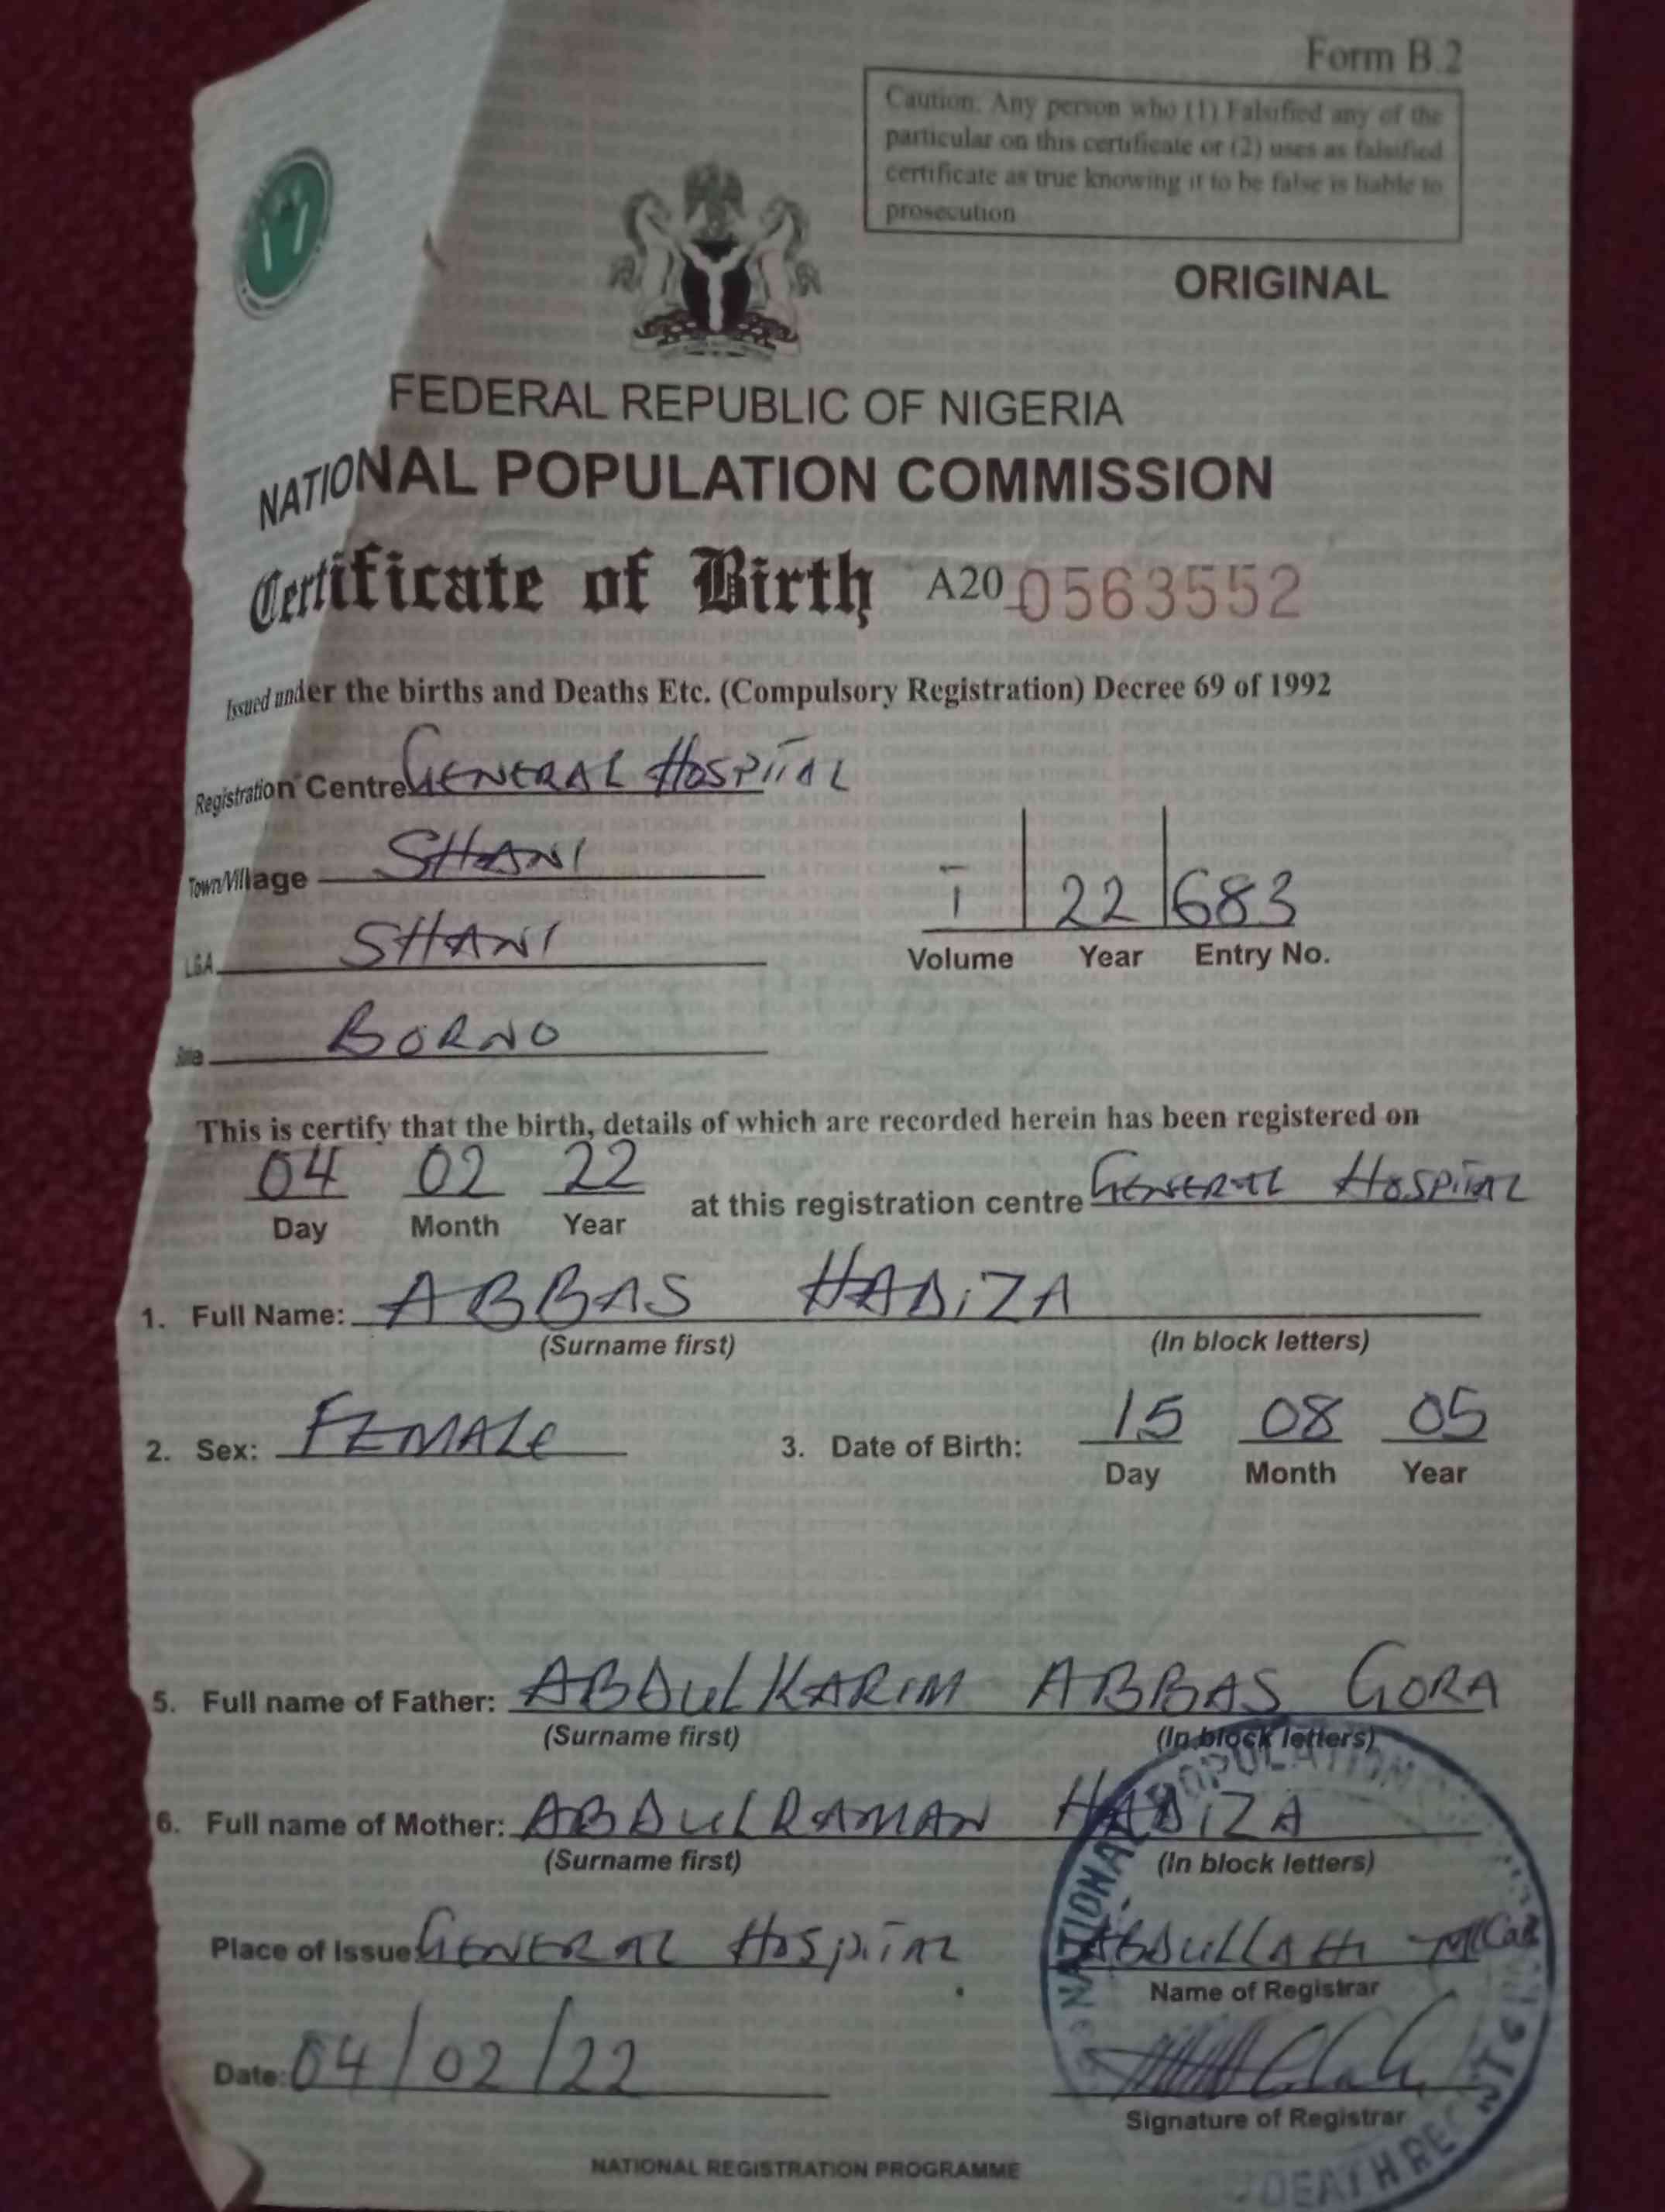 Form B.2
Caution: Any person who (1) Falsified any of the
particular on this certificate or (2) uses as falsified
certificate as true knowing it to be false is liable to
prosecution
ORIGINAL
FEDERAL REPUBLIC OF NIGERIA
NATIONAL POPULATION COMMISSION
Certificate of Birth A20 0563552
Issued under the births and Deaths Etc. (Compulsory Registration) Decree 69 of 1992
Registration Centre GENERAL HOSPITAL
Town/Village SHANI
I 22 683
L.G.A. SHANI
Volume Year Entry No.
State BORNO
This is certify that the birth, details of which are recorded herein has been registered on
04 02 22 at this registration centre GENERAL HOSPITAL
Day Month Year
1. Full Name: ABBAS HADIZA
(Surname first) (In block letters)
2. Sex: FEMALE 3. Date of Birth: 15 08 05
Day Month Year
5. Full name of Father: ABDULKARIM ABBAS GORA
(Surname first) (In block letters)
6. Full name of Mother: ABDULRAMAN HADIZA
(Surname first) (In block letters)
Place of Issue GENERAL HOSPITAL ABDULLAHI
Name of Registrar
Date: 04/02/22
Signature of Registrar
NATIONAL REGISTRATION PROGRAMME
NATIONAL POPULATION
DEATH